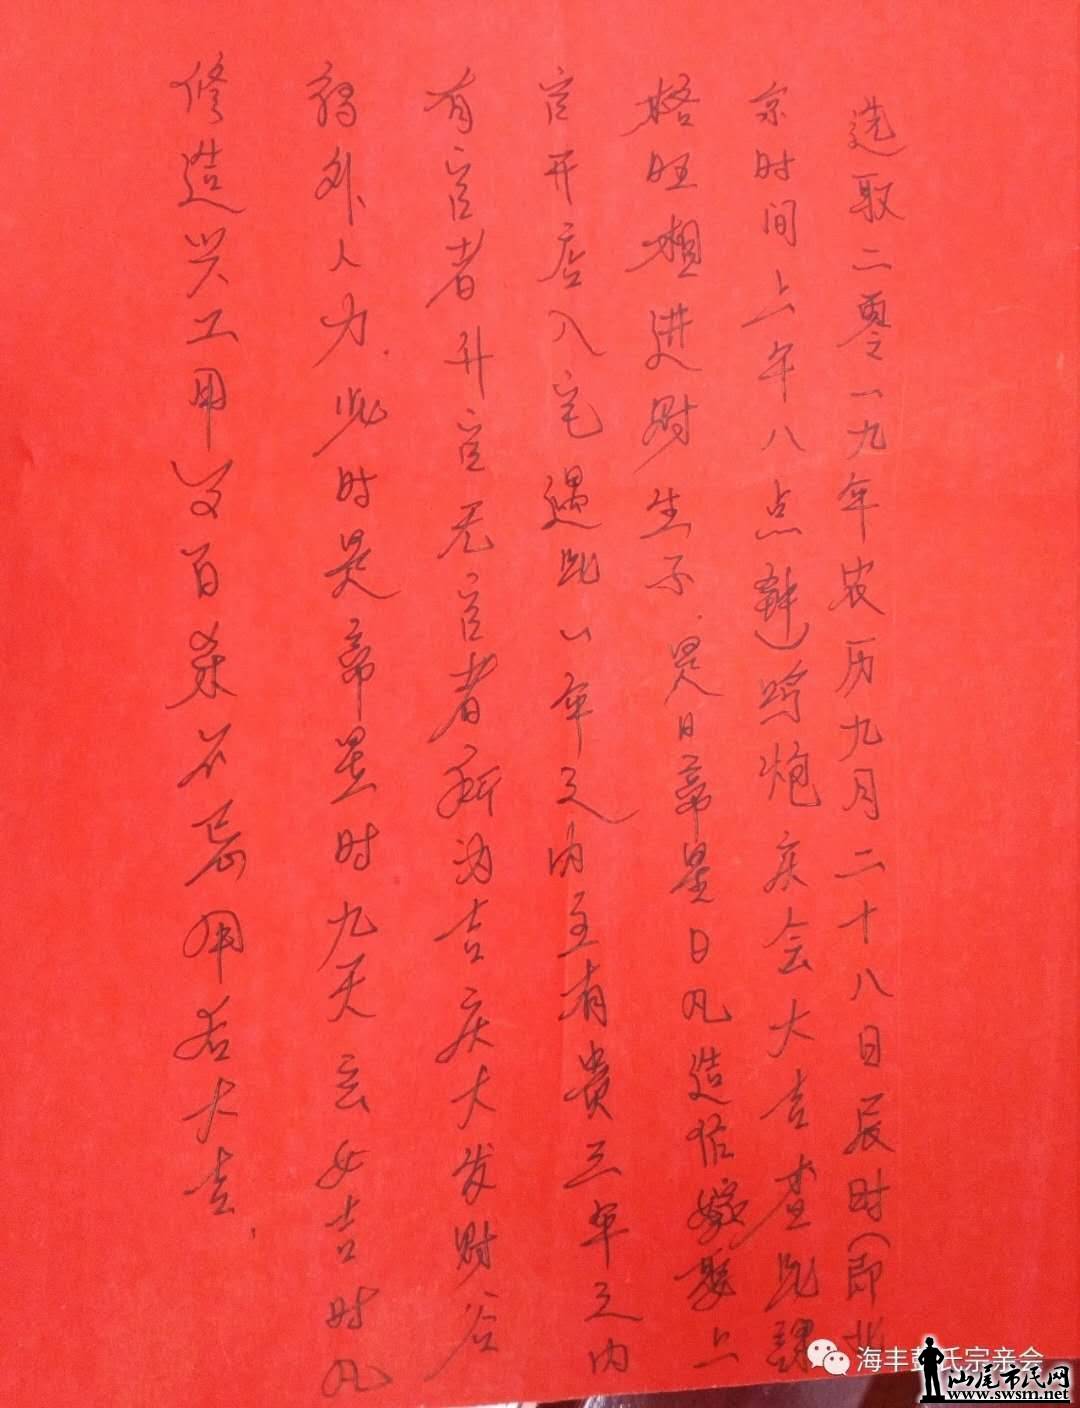 选取二零一九年农历九月二十八日辰时(即北
京时间上午八点鞭炮庆会大吉查此課
格旺相进财生子.是日帝星日凡造作嫁娶上
官开店入宅遇此一年之内主有貴三年之内
有官者升官无官者 吉庆大发财谷
得外人力.此时是帝星时九天玄女吉时凡
修造兴工用 百杀不忌用者大吉.
海丰彭氏宗亲会
汕尾市民网
www.swsm.net